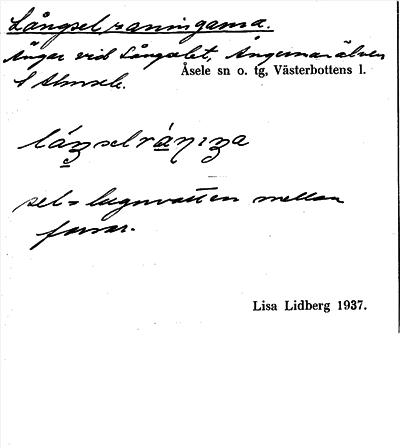 Långselraningarna.
Ängar vid Långselet, Ångermanälven
Åsele sn o. tg, Västerbottens l.
sel = lugnvatten mellan
forsar.
Lisa Lidberg 1937.